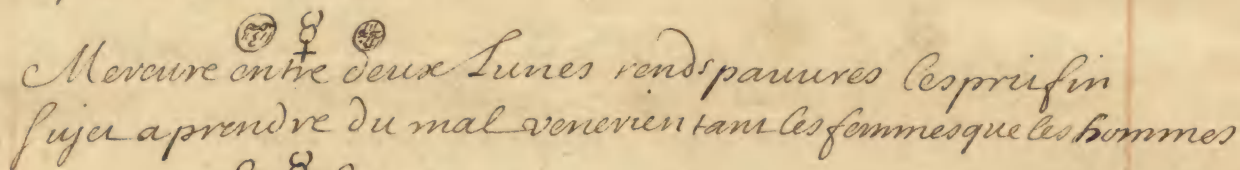 Mercure entre deux Lunes rends pauures lesprit fin
sujet a prendre du mal venerien tant les femmes que les hommes